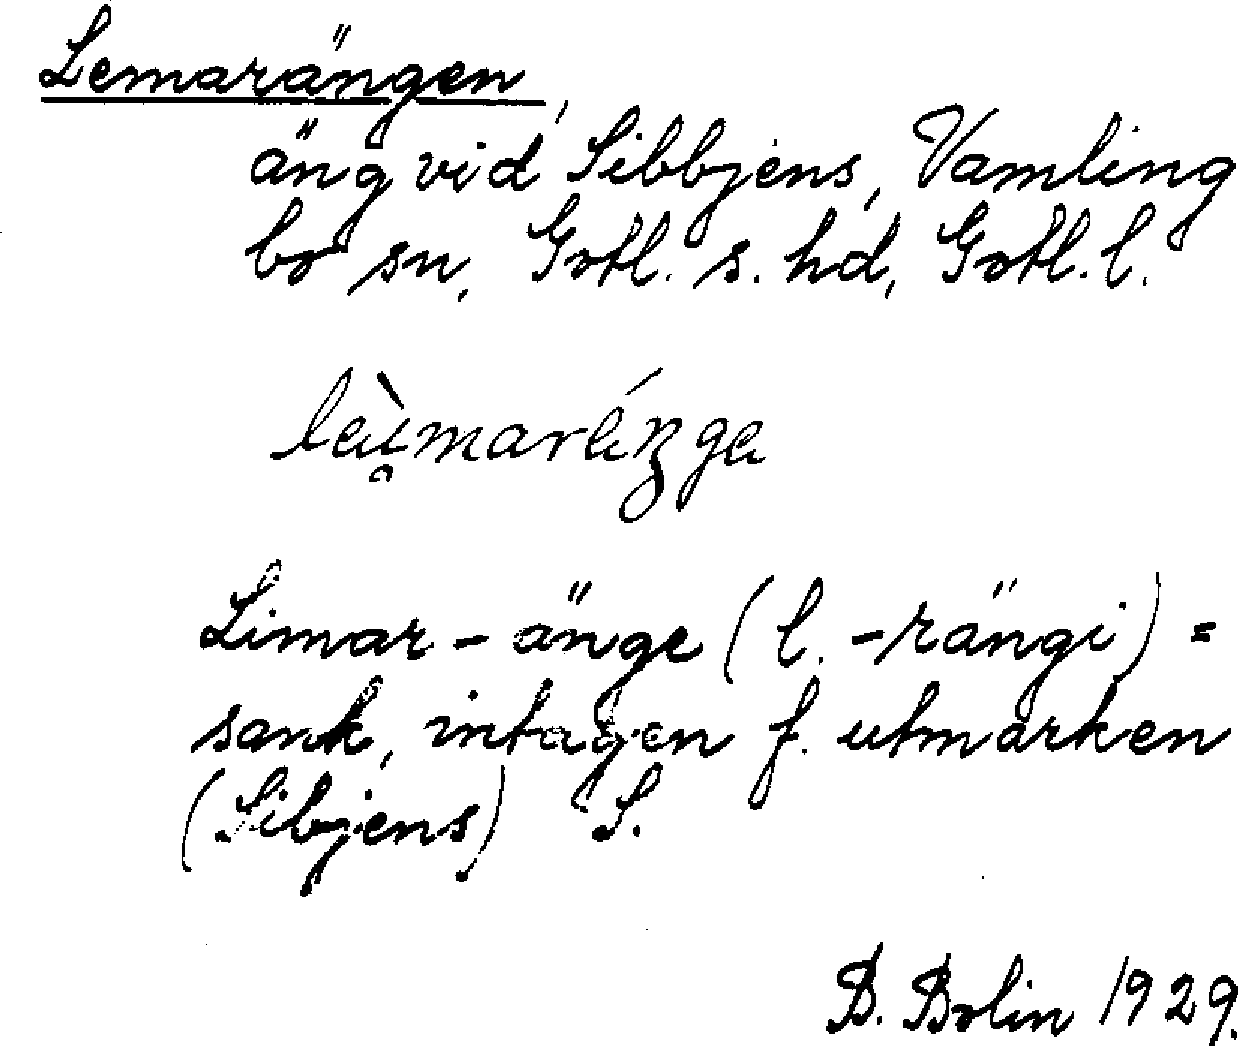 Lemarängen,
äng vid Sibbjens, Vamling
bo sn, Gotl. s. hd, Gotl. l.
Limar - änge (l. -rängi) =
sank, intagen f. utmarken
(Sibjens) S.
B. Bolin 1929.